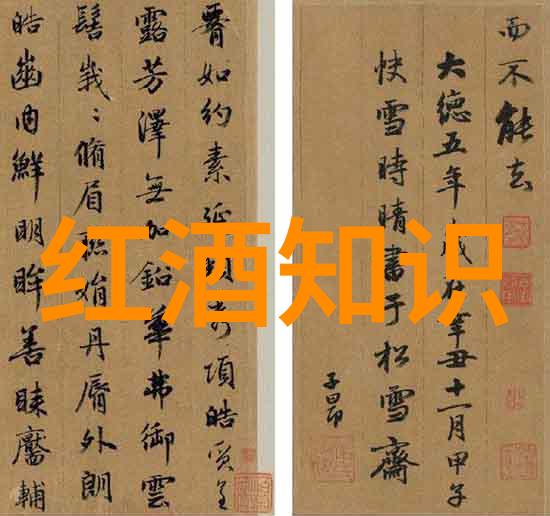 如約素延頸秀項皓質呈
露芳澤無加鉛華弗御雲
髻峩〻脩眉聯娟丹脣外朗
皓齒内鮮明眸善睞靨輔
而不能去
大德五年歲在辛丑十一月甲子
快雪時晴書于松雪齋
子昂
红酒知识